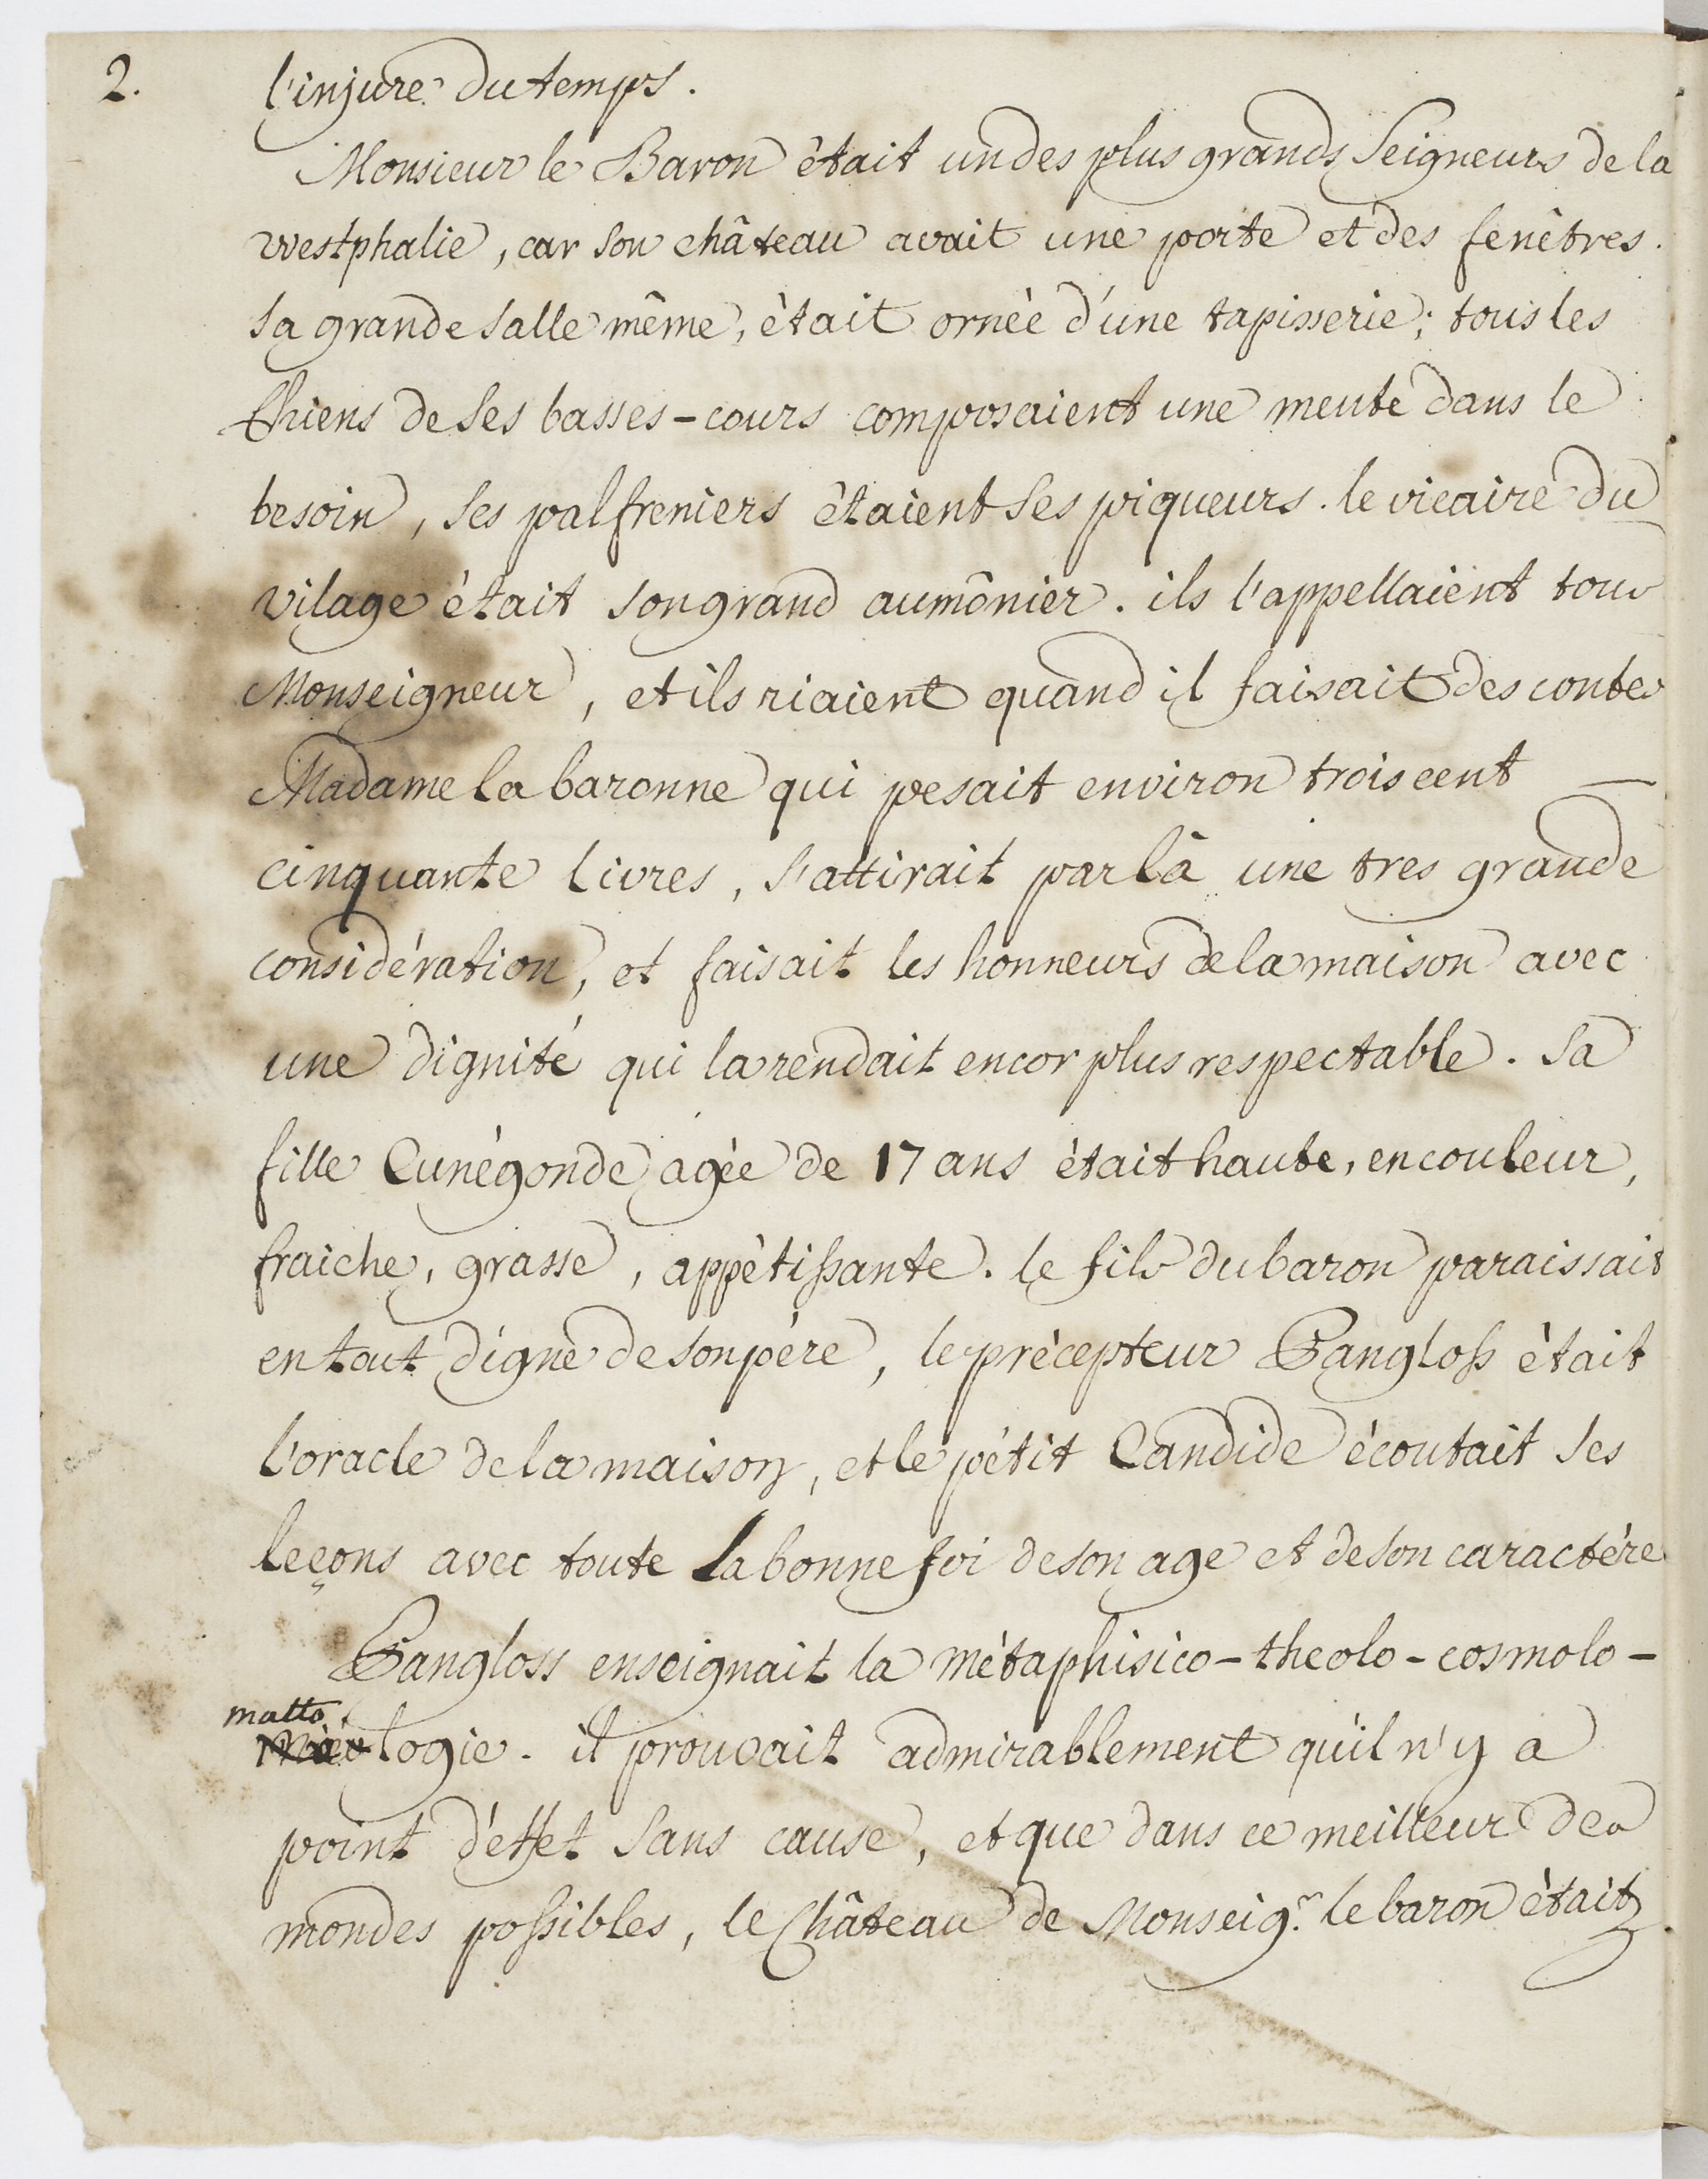 2.
l'injure du temps.
Monsieur le Baron ètait un des plus grands Seigneurs de la
westphalie, car son château avait une porte et des fenêtres.
sa grande salle même, ètait ornèe d'une tapisserie; tous les
Chiens de ses basses-cours composaient une meute dans le
besoin, ses palfreniers ètaient ses piqueurs. le vicaire du
vilage ètait son grand aumônier. ils l'appellaient tous
Monseigneur, et ils riaient quand il faisait des contes
Madame la baronne qui pesait environ trois cent —
cinquante livres, s'attirait par là une tres grande
considération, et faisait les honneurs de la maison avec
une dignité qui la rendait encor plus respectable. sa
fille Cunègonde agèe de 17 ans ètait haute, en couleur,
fraiche, grasse, appètissante. le fils du baron paraissait
en tout digne de son père, le prècepteur Pangloss ètait
l'oracle de la maison, et le pétit Candide ècoutait ses
leçons avec toute la bonne foi de son age et de son caractére
Pangloss enseignait la mètaphisico-theolo-cosmolo-
matto
logie. il prouvait admirablement qu'il n'y a
point d'effet sans cause, et que dans ce meilleur des
mondes possibles, le Château de Monseigr. le baron ètait